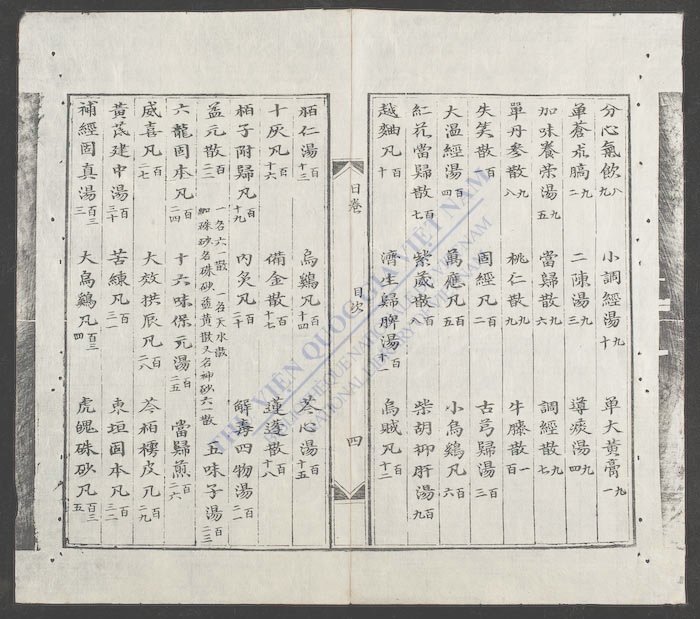 分心氣飲八九 小調經湯九十 單大黃膏九一
單蒼朮膏九二 二陳湯九三 導痰湯九四
加味養荣湯九五 當歸散九六 調經散九七
單丹參散九八 桃仁散九九 牛膝散百一
失笑散百 固經凡百二 古芎歸湯百三
大溫經湯百四 萬應凡百五 小烏鷄凡百六
紅花當歸散百七 紫葳散百八 柴胡抑肝湯百九
越鞠凡百十 濟生歸脾湯百十一 烏贼凡百十二
日巻 目次 四
栢仁湯百十三 烏鷄凡百十四 苓心湯百十五
十灰凡百十六 備金散百十七 蓮蓬散百十八
栢子附歸凡百十九 內灸凡百二十 解毒四物湯百二一
益元散百二二 一名六一散 一名天水散 加硃砂名硃砂益黃散又名神砂六一散 五味子湯百二三
六龍固本凡百二四 十六味保元湯百二五 當歸煎百二六
威喜凡百二七 大效拱辰凡百二八 芩栢樗皮凡百二九
黃芪建中湯百三十 苦練凡百三一 東垣固本凡百三二
補經固真湯百三三 大烏鷄凡百三四 虎魄硃砂凡百三五
THƯ VIỆN QUỐC GIA VIỆT NAM
BIBLIOTHÈQUE NATIONALE DU VIETNAM
NATIONAL LIBRARY OF VIETNAM